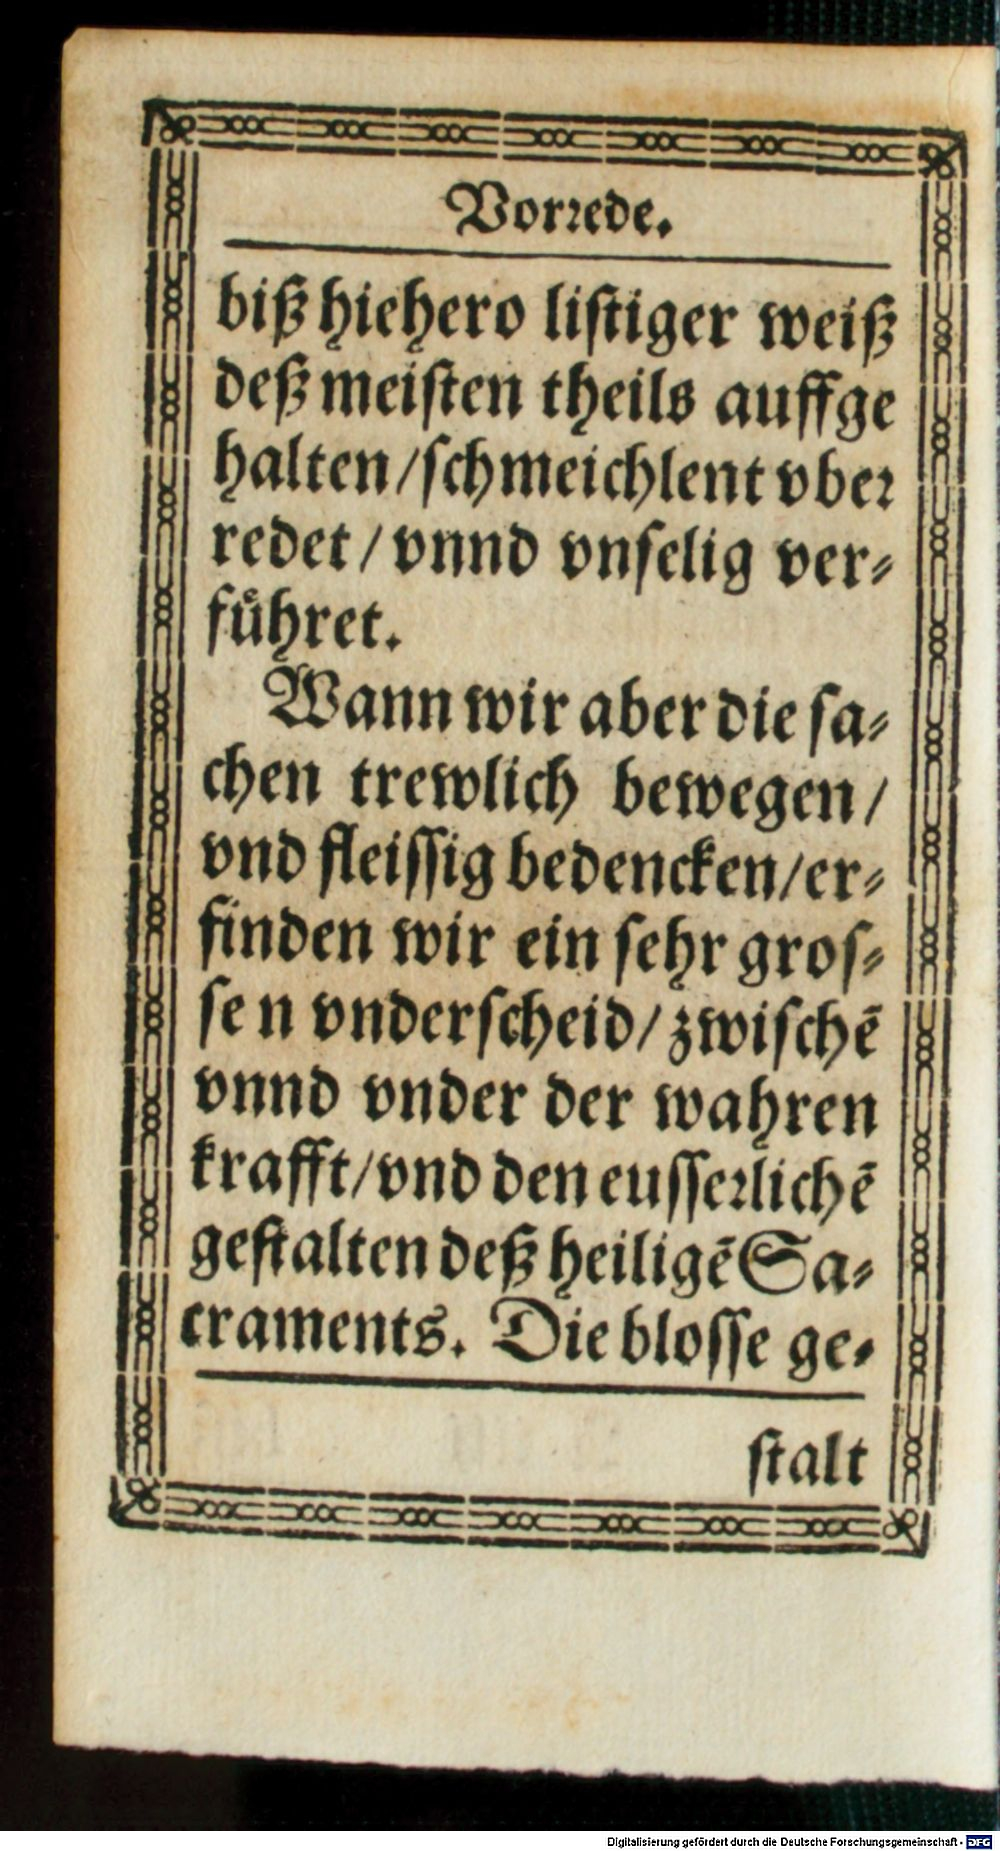 Vorꝛede.
biß hiehero liſtiger weiß
deß meiſten theils auffge
halten/ſchmeichlent vbeꝛ
redet/vnnd vnſelig ver⸗
fuͤhret.
Wann wir aber die ſa⸗
chen trewlich bewegen/
vnd fleiſſig bedencken/er⸗
finden wir ein ſehr groſ⸗
ſe n vnderſcheid/zwiſchē
vnnd vnder der wahren
krafft/vnd den euſſeꝛlichē
geſtalten deß heiligē Sa⸗
craments. Die bloſſe ge⸗
ſtalt
Digitalisierung gefördert durch die Deutsche Forschungsgemeinschaft - DFG